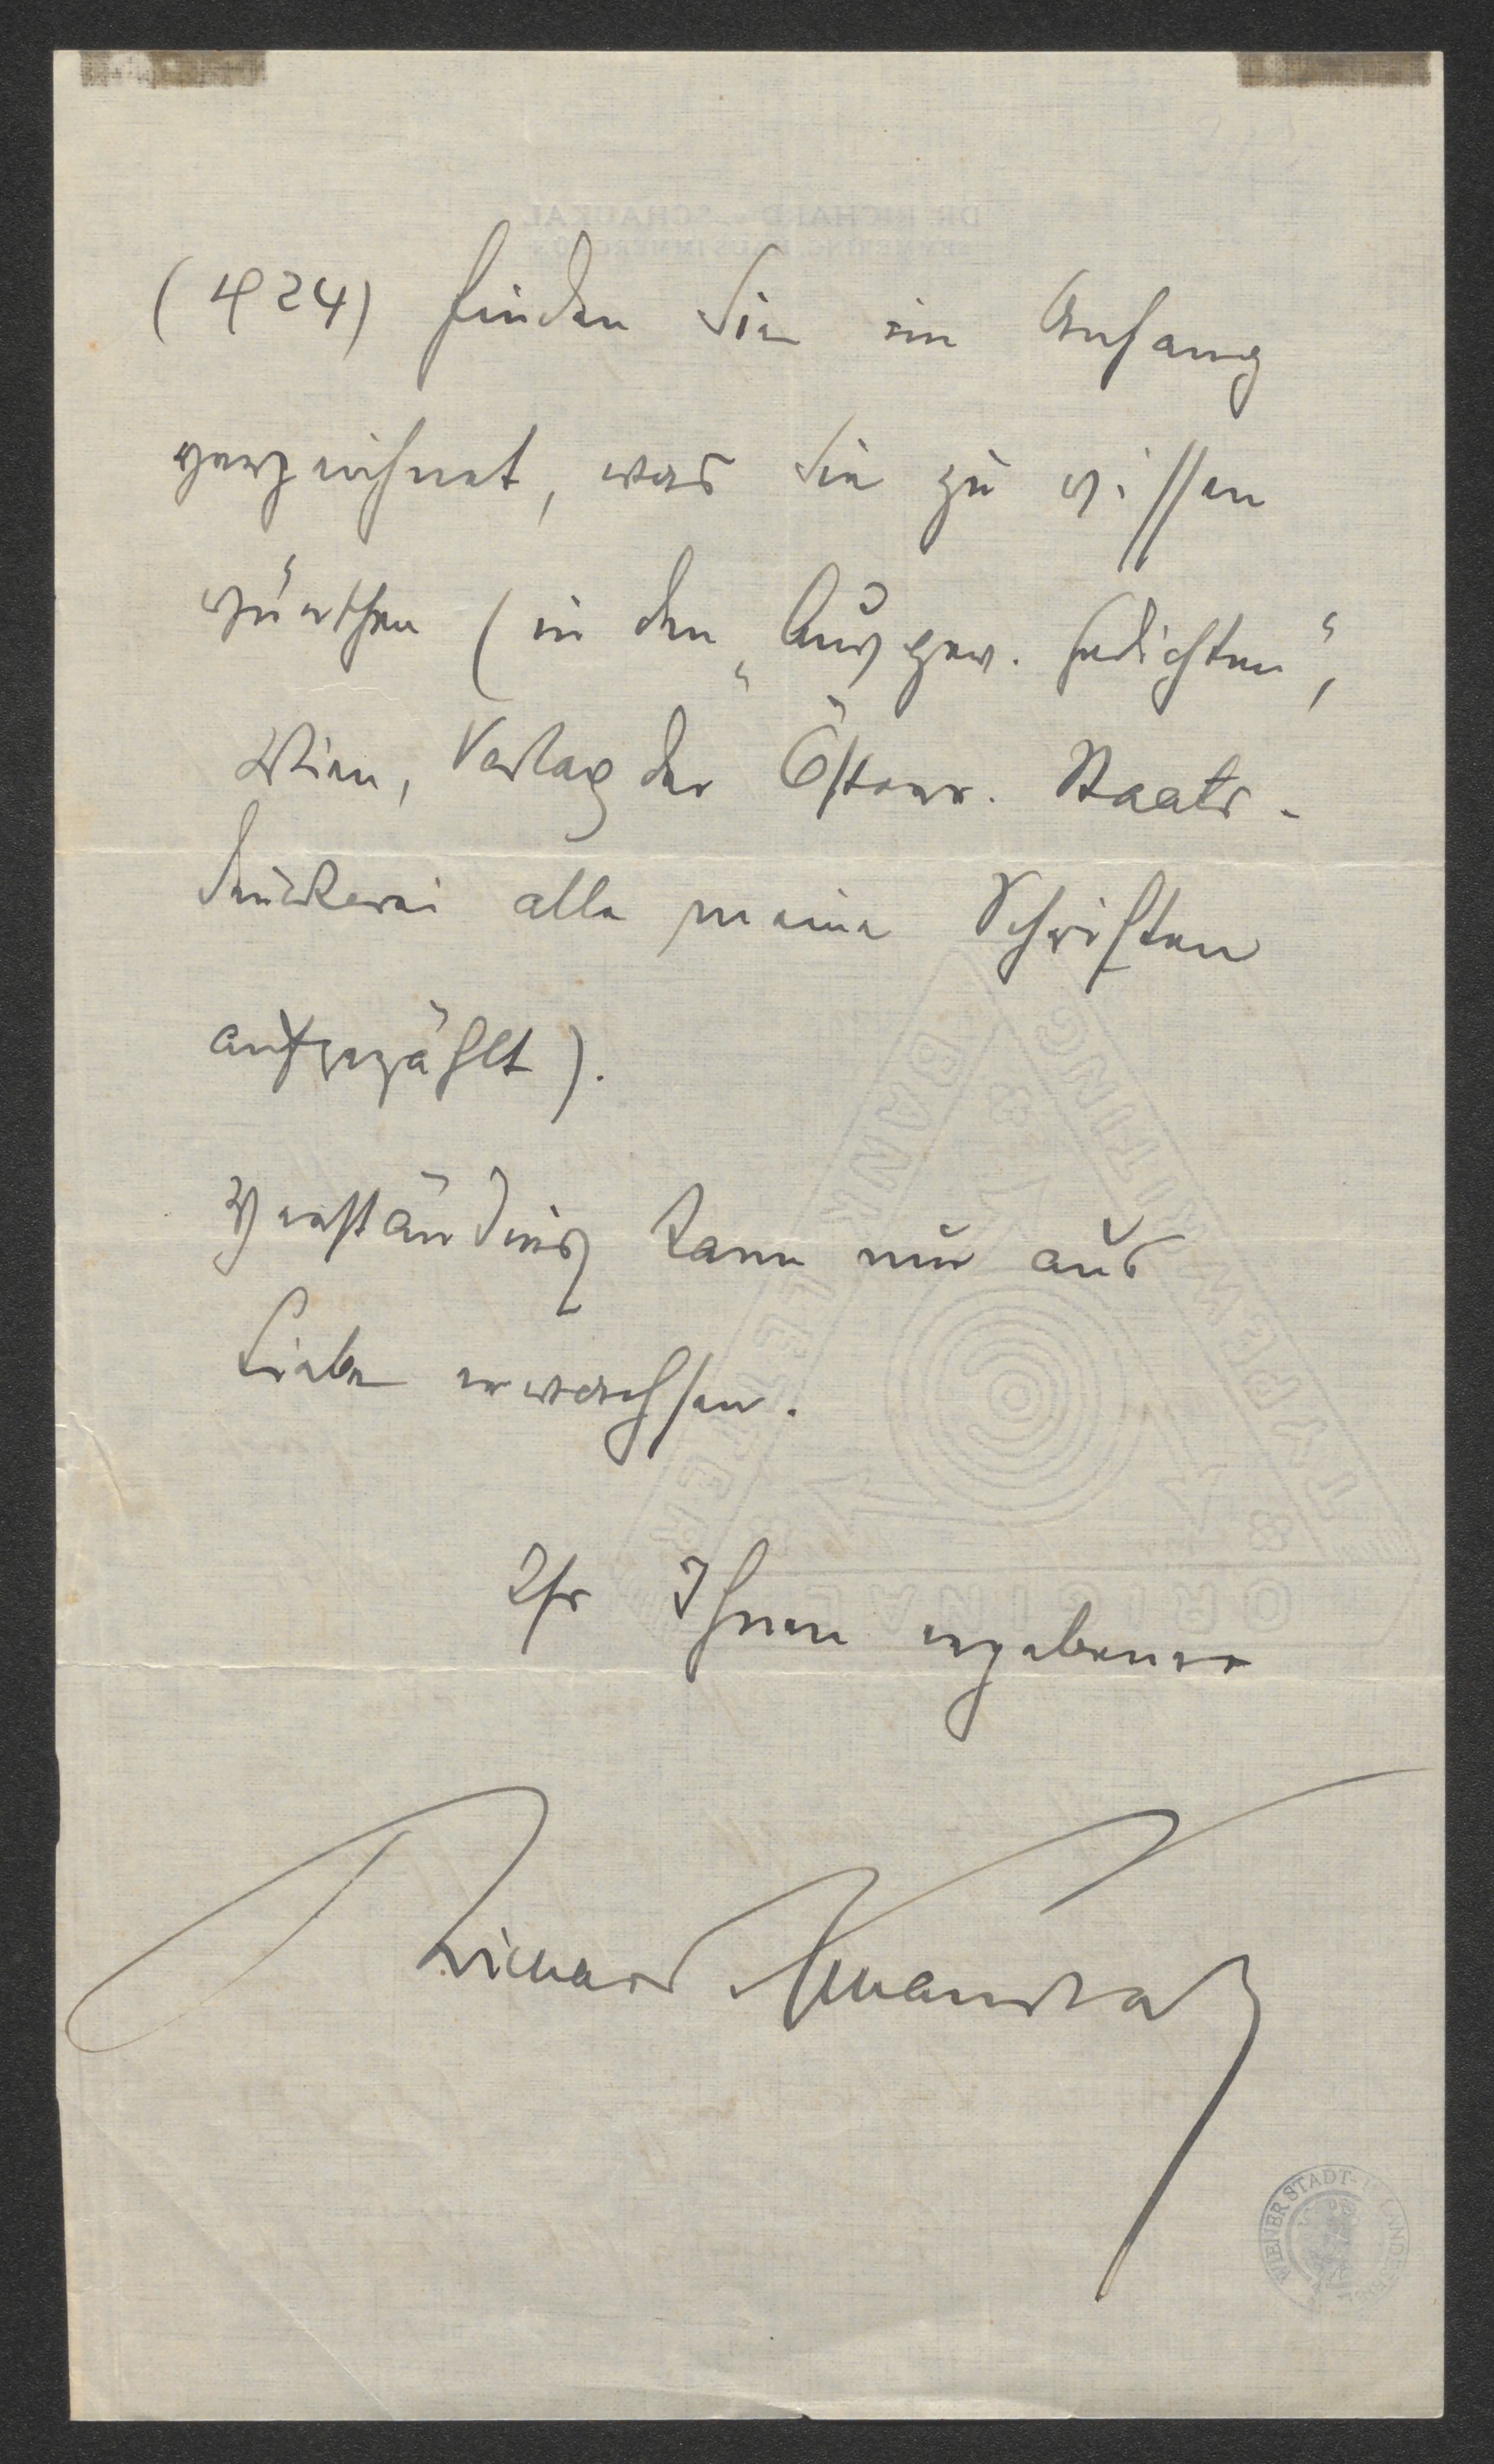 DR. RICHARD v. SCHAUKAL
(1924) finden Sie im Anhang
verzeichnet, was Sie zu wissen
wünschen (in den „Ausgew. Gedichten“,
Wien, Verlag der Österr. Staats-
druckerei alle meine Schriften
aufgezählt).
Verständnis kann nur aus
Liebe erwachsen.
Ihr Ihnen ergebener
Richard Schaukal
BANK LETTER
TYPEWRITING
ORIGINAL
WIENER STADT-